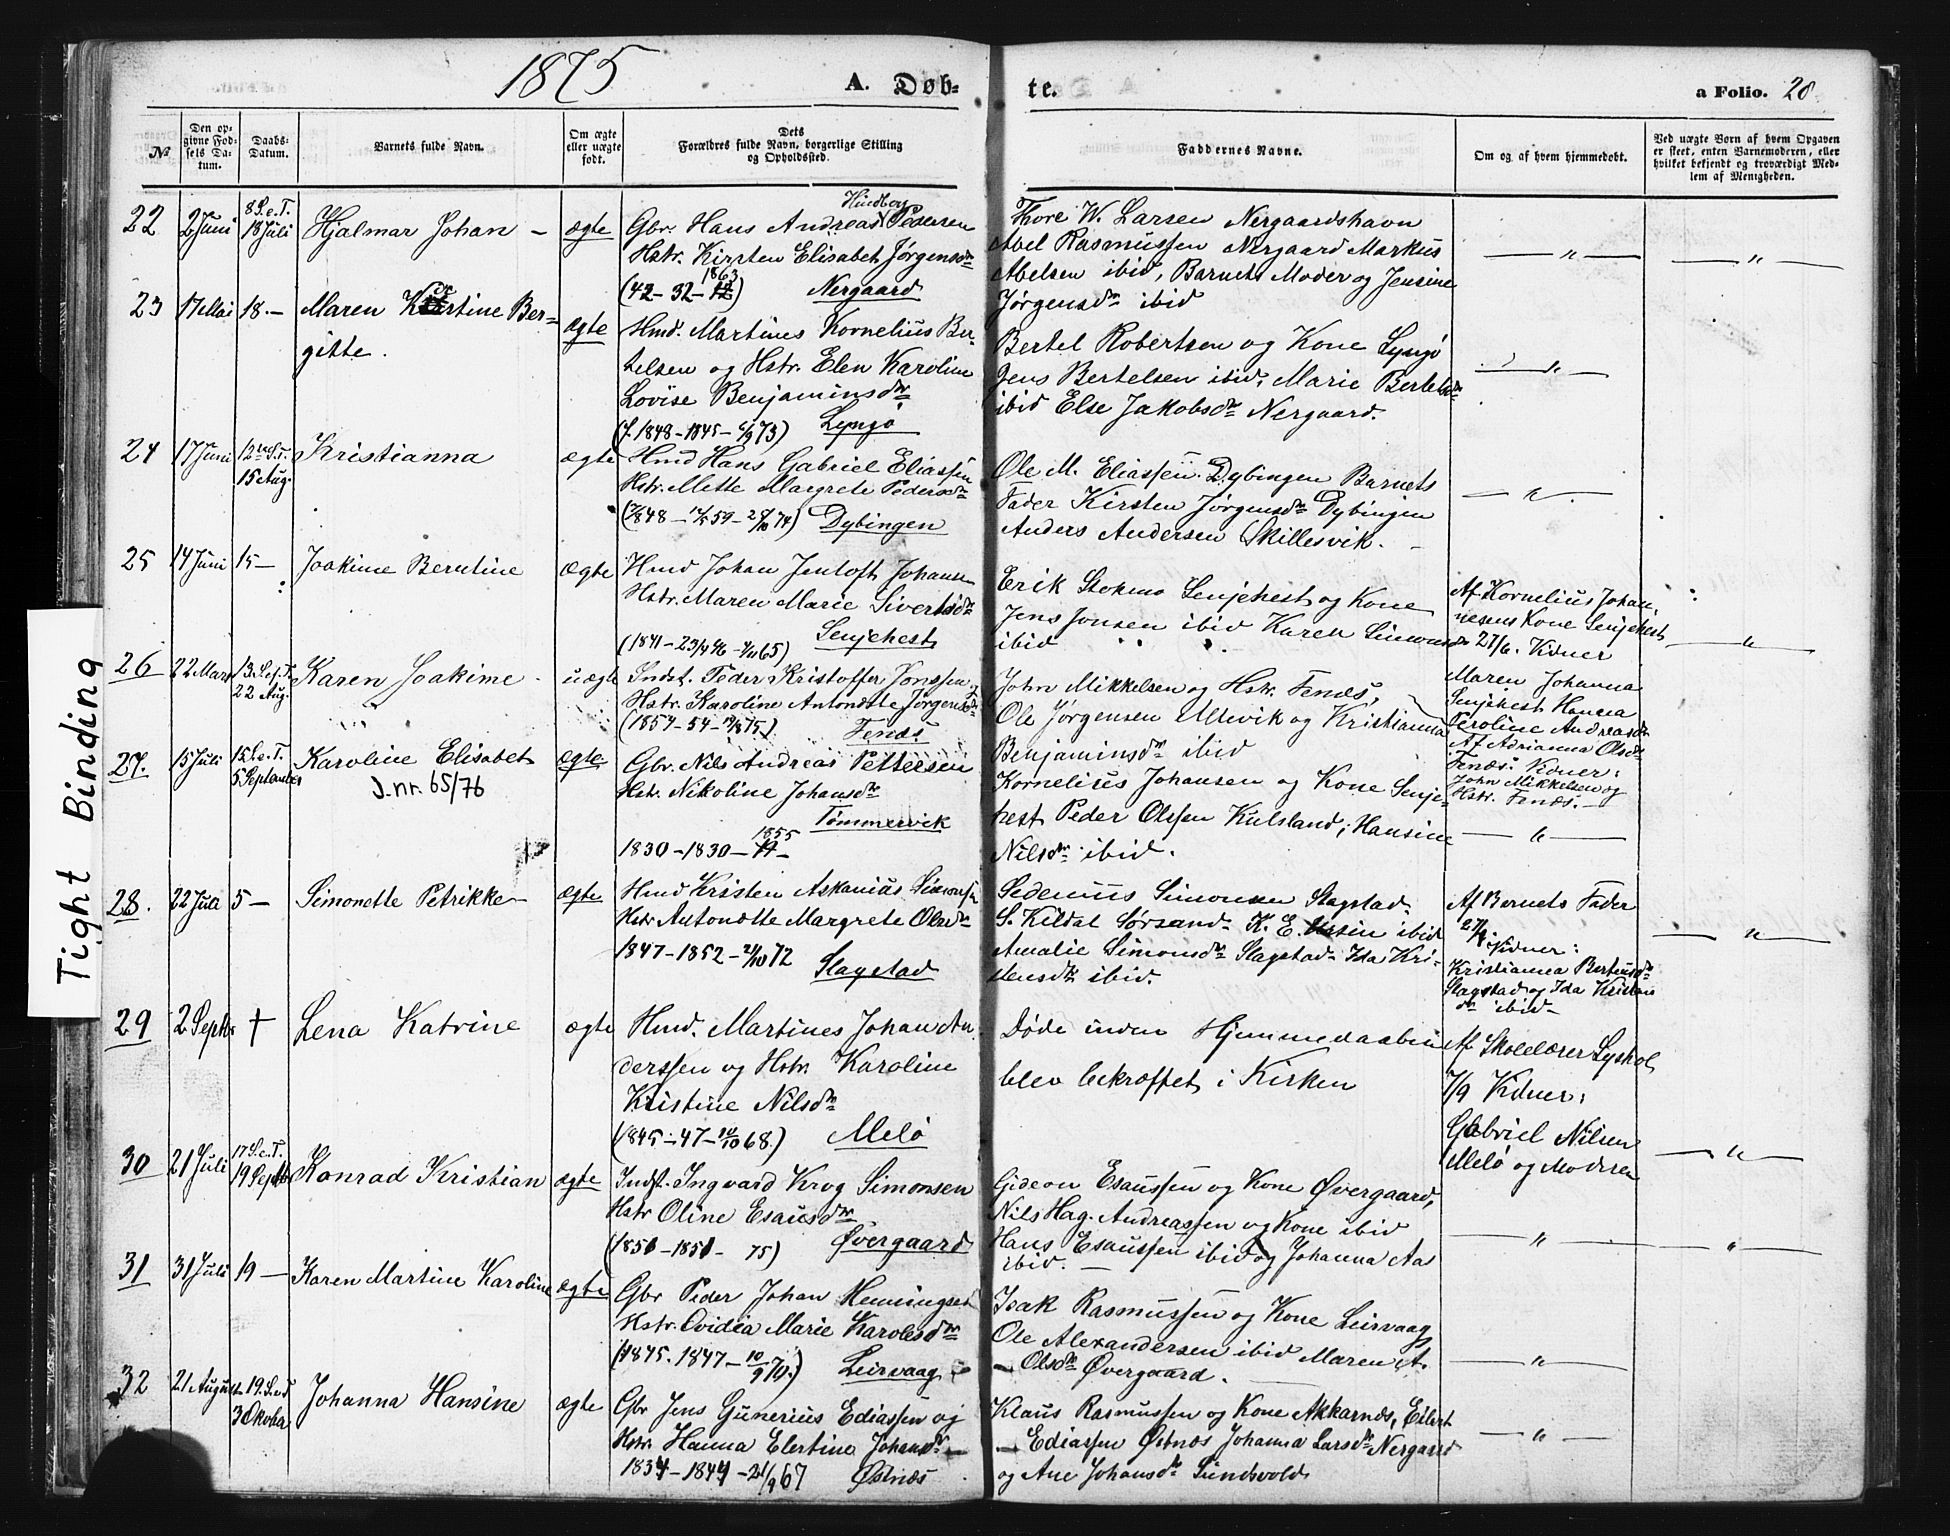 1875
A. Døb-
te.
a Folio. 28
№
Den op-
givne Fød-
sels Da-
tum.
Daabs-
Datum.
Barnets fulde Navn.
Om ægte
eller uægte
født.
Dets
Forældres fulde Navn, borgerlige Stilling
og Opholdssted.
Faddernes Navne.
Om og af hvem hjemmedøbt.
Ved uægte Børn af hvem Opgaven
er skeet, enten Barnemoderen, eller
hvilket bekjendt og troværdigt Med-
lem af Menigheden.
Tight Binding
22
2 Juni
8 S.e.T.
18 Juli
Hjalmar Johan –
ægte
Hindberg
Gbr. Hans Andreas Pedersen
Hstr. Kirsten Elisabet Jørgensdr
1863
(42–32–)
Nergaard
Thore W. Larsen Nergaardshavn
Abel Rasmussen Nergaard Markus
Abelsen ibid, Barnets Moder og Jensine
Jørgensdr ibid
— " —
— " —
23
17 Mai
18.–
Maren Kirstine Ber-
gitte.
ægte
Hmd. Martines Kornelius Ber-
telsen og Hstr. Elen Karoline
Lovise Benjaminsdr
(f. 1848–1845– 73) Lyngø
Bertel Robertsen og Kone Lyngø
Jens Bertelsen ibid, Marie Bertelsdr
ibid Else Jakobsdr Nergaard.
— " —
24
17 Juni
12te S.T.
15 Aug.
Kristianna
ægte
Hmd Hans Gabriel Eliassen
Hstr. Mette Margrete Pedersdr
Dybingen
Ole M. Eliassen Dybingen Barnets
Fader Kirsten Jørgensdr Dybingen
Anders Andersen Skillesvik. –
— " —
25
14 Juni
15–
Joakime Berntine
ægte
Hmd Johan Jentoft Johansen
Hstr. Maren Marie Sivertsdr
Senjehest
Erik Stokmo Senjehest og Kone
Jens Jonsen ibid Karen Simonsdr
ibid
Af Kornelius Johan-
nesens Kone Senjehest
27/6. Vidner
Maren Johanna
Senjehest Hanna
Peroline Andreasdr
— " —
26
22 Mars
13 S.e.T.
22 Aug.
Karen Joakime –
uægte
Indst. Peder Kristoffer Jonssen
Hstr. Karoline Antonette Jørgensdr
Fenæs
John Mikkelsen og Hstr. Fenæs,
Ole Jørgensen Altevik og Kristianna
Benjaminsdr ibid
Af Adrianna Olsdr
Fenæs. Vidner:
John Mikkelsen og
Hstr. Fenæs. –
27.
15 Juli
15 S.e.T.
5 September
Karoline Elisabet
J.nr. 65/76
ægte
Gbr. Nils Andreas Pettersen
Hstr. Nikoline Johansdr
Tømmervik
1855
1830–1830–
Kornelius Johansen og Kone Senje-
hest Peder Olssen Kulsland, Hansine
Nilsdr ibid.
— " —
28.
22 Juli
5 –
Simonette Petrikke –
ægte
Hmd Kristen Askanius Simonsen
Hstr Antonette Margrete Olsdr
1847–1852–24/10 72
Slagstad
Sedenius Simonsen Slagstad
S. Kildal Sørsand K. E. Ursin ibid
Amalie Simonsdr Slagstad Ida Kri-
stensdr ibid.
Af Barnets Fader
Vidner:
Kristianna Berteusdr
Slagstad og Ida Kristens
dr ibid –
— " —
29
2 Septbr
†
Lena Katrine
ægte
Hmd. Martines Johan An-
derssen og Hstr. Karoline
Kristine Nilsdr
(1845–47–10/10 68) Melø
Døde inden Hjemmedaaben
blev bekræftet i Kirken
Af Skolelærer Lyshol
7/9 Vidner:
Gabriel Nilsen
Melø og Moderen
— " —
30
21 Juli
17 S.e.T.
19 Septbr
Konrad Kristian
ægte
Indst. Ingvard Krog Simonsen
Hstr Oline Esausdr
(1850–1851– 75) Øvergaard
Gideon Esaussen og Kone Øvergaard,
Nils Hag. Andreassen og Kone ibid
Hans Esaussen ibid og Johanna Aas
ibid. –
— " —
— " —
31
31 Juli
19 –
Karen Martine Karoline
ægte
Gbr Peder Johan Henningsen
Hstr. Ovidia Marie Karolesdr
(1845. 1847–10/9 70.) Leirvaag
Isak Rasmussen og Kone Leirvaag
Ole Alexandersen ibid Maren A.
– Olsdr Øvergaard. –
— " —
32
21 August
19. S.e.T
3 Oktober
Johanna Hansine
ægte
Gbr Jens Gunerius Ediassen og
Hstr Hanna Elertine Johansdr –
1834–1844–21/9 67 Østnæs
Klaus Rasmussen og Kone Akkarnæs, Eilert
– Ediassen Østnæs Johanna Larsdr Nergaard
og Ane Johansdr Sundsvold
— " —